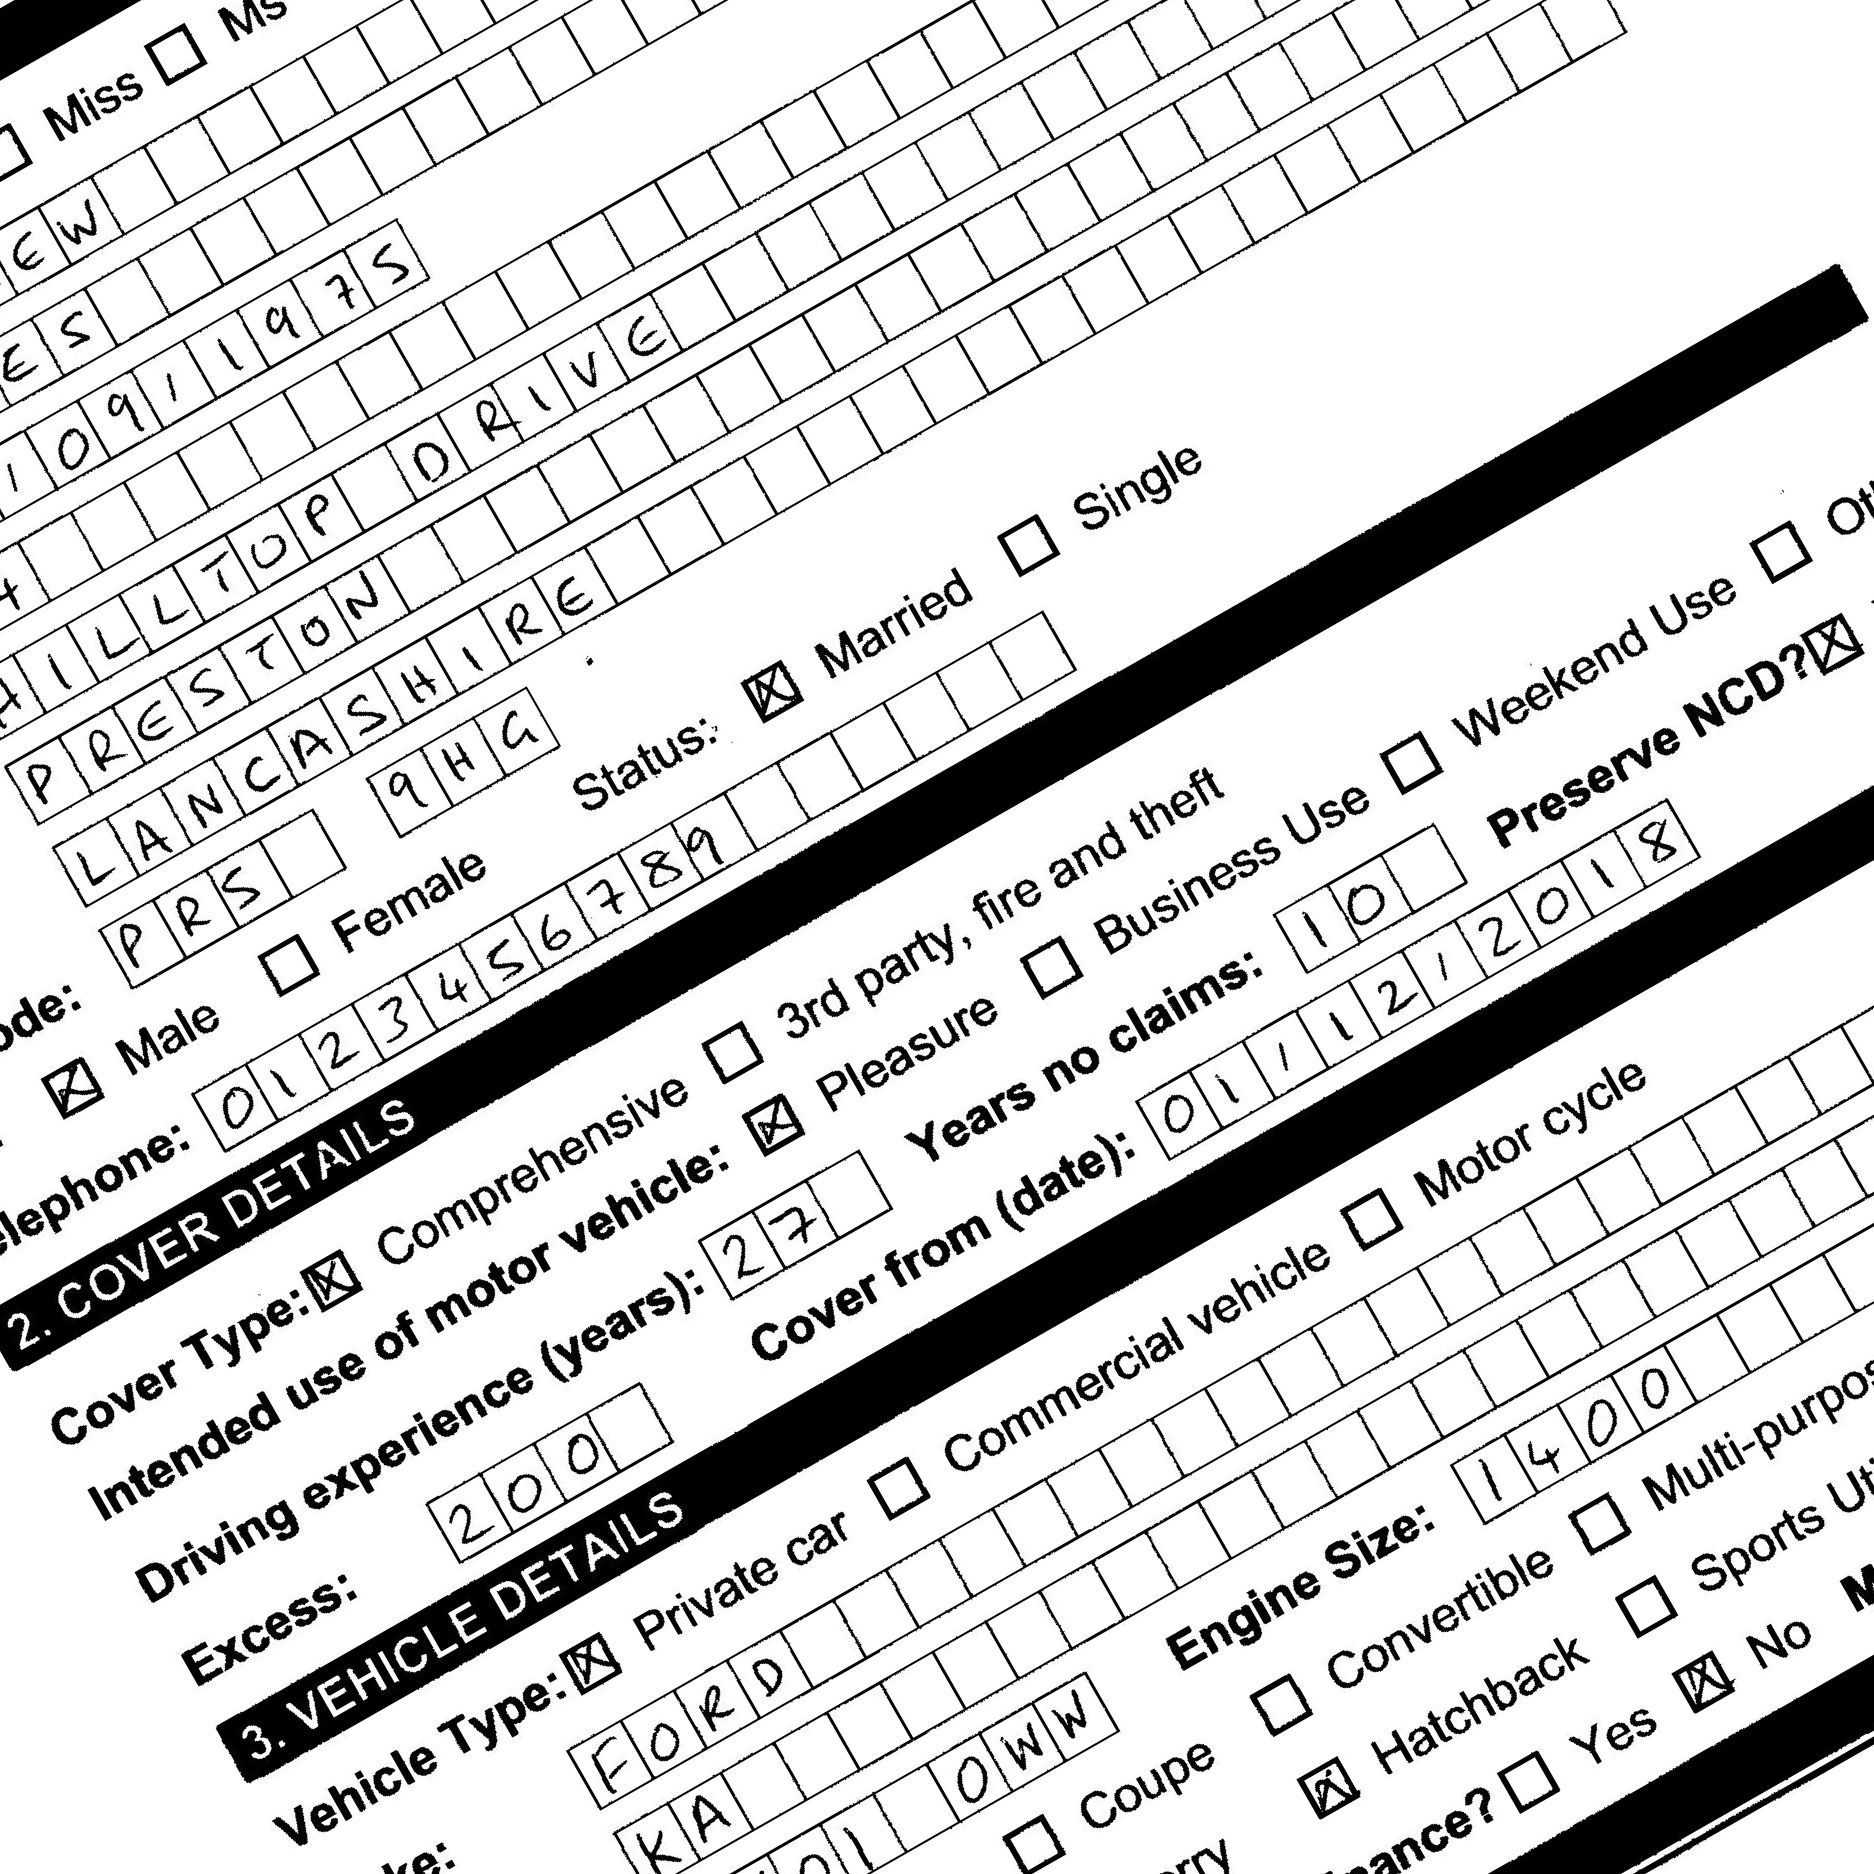 Miss ☐ Ms
EW
ES
/09/1975
4
HILLTOP DRIVE
PRESTON
LANCASHIRE
ode: PRS 9HG
☒ Male ☐ Female Status: ☒ Married ☐ Single
elephone: 0123456789
2. COVER DETAILS
Cover Type: ☒ Comprehensive ☐ 3rd party, fire and theft
Intended use of motor vehicle: ☒ Pleasure ☐ Business Use ☐ Weekend Use ☐ Ot
Driving experience (years): 27 Years no claims: 10 Preserve NCD? ☒
Excess: 200 Cover from (date): 01/12/2018
3. VEHICLE DETAILS
Vehicle Type: ☒ Private car ☐ Commercial vehicle ☐ Motor cycle
ke: FORD
KA Engine Size: 1400
01 OWW
☐ Coupe ☐ Convertible ☐ Multi-purpos
erry ☒ Hatchback ☐ Sports Uti
nance? ☐ Yes ☒ No M